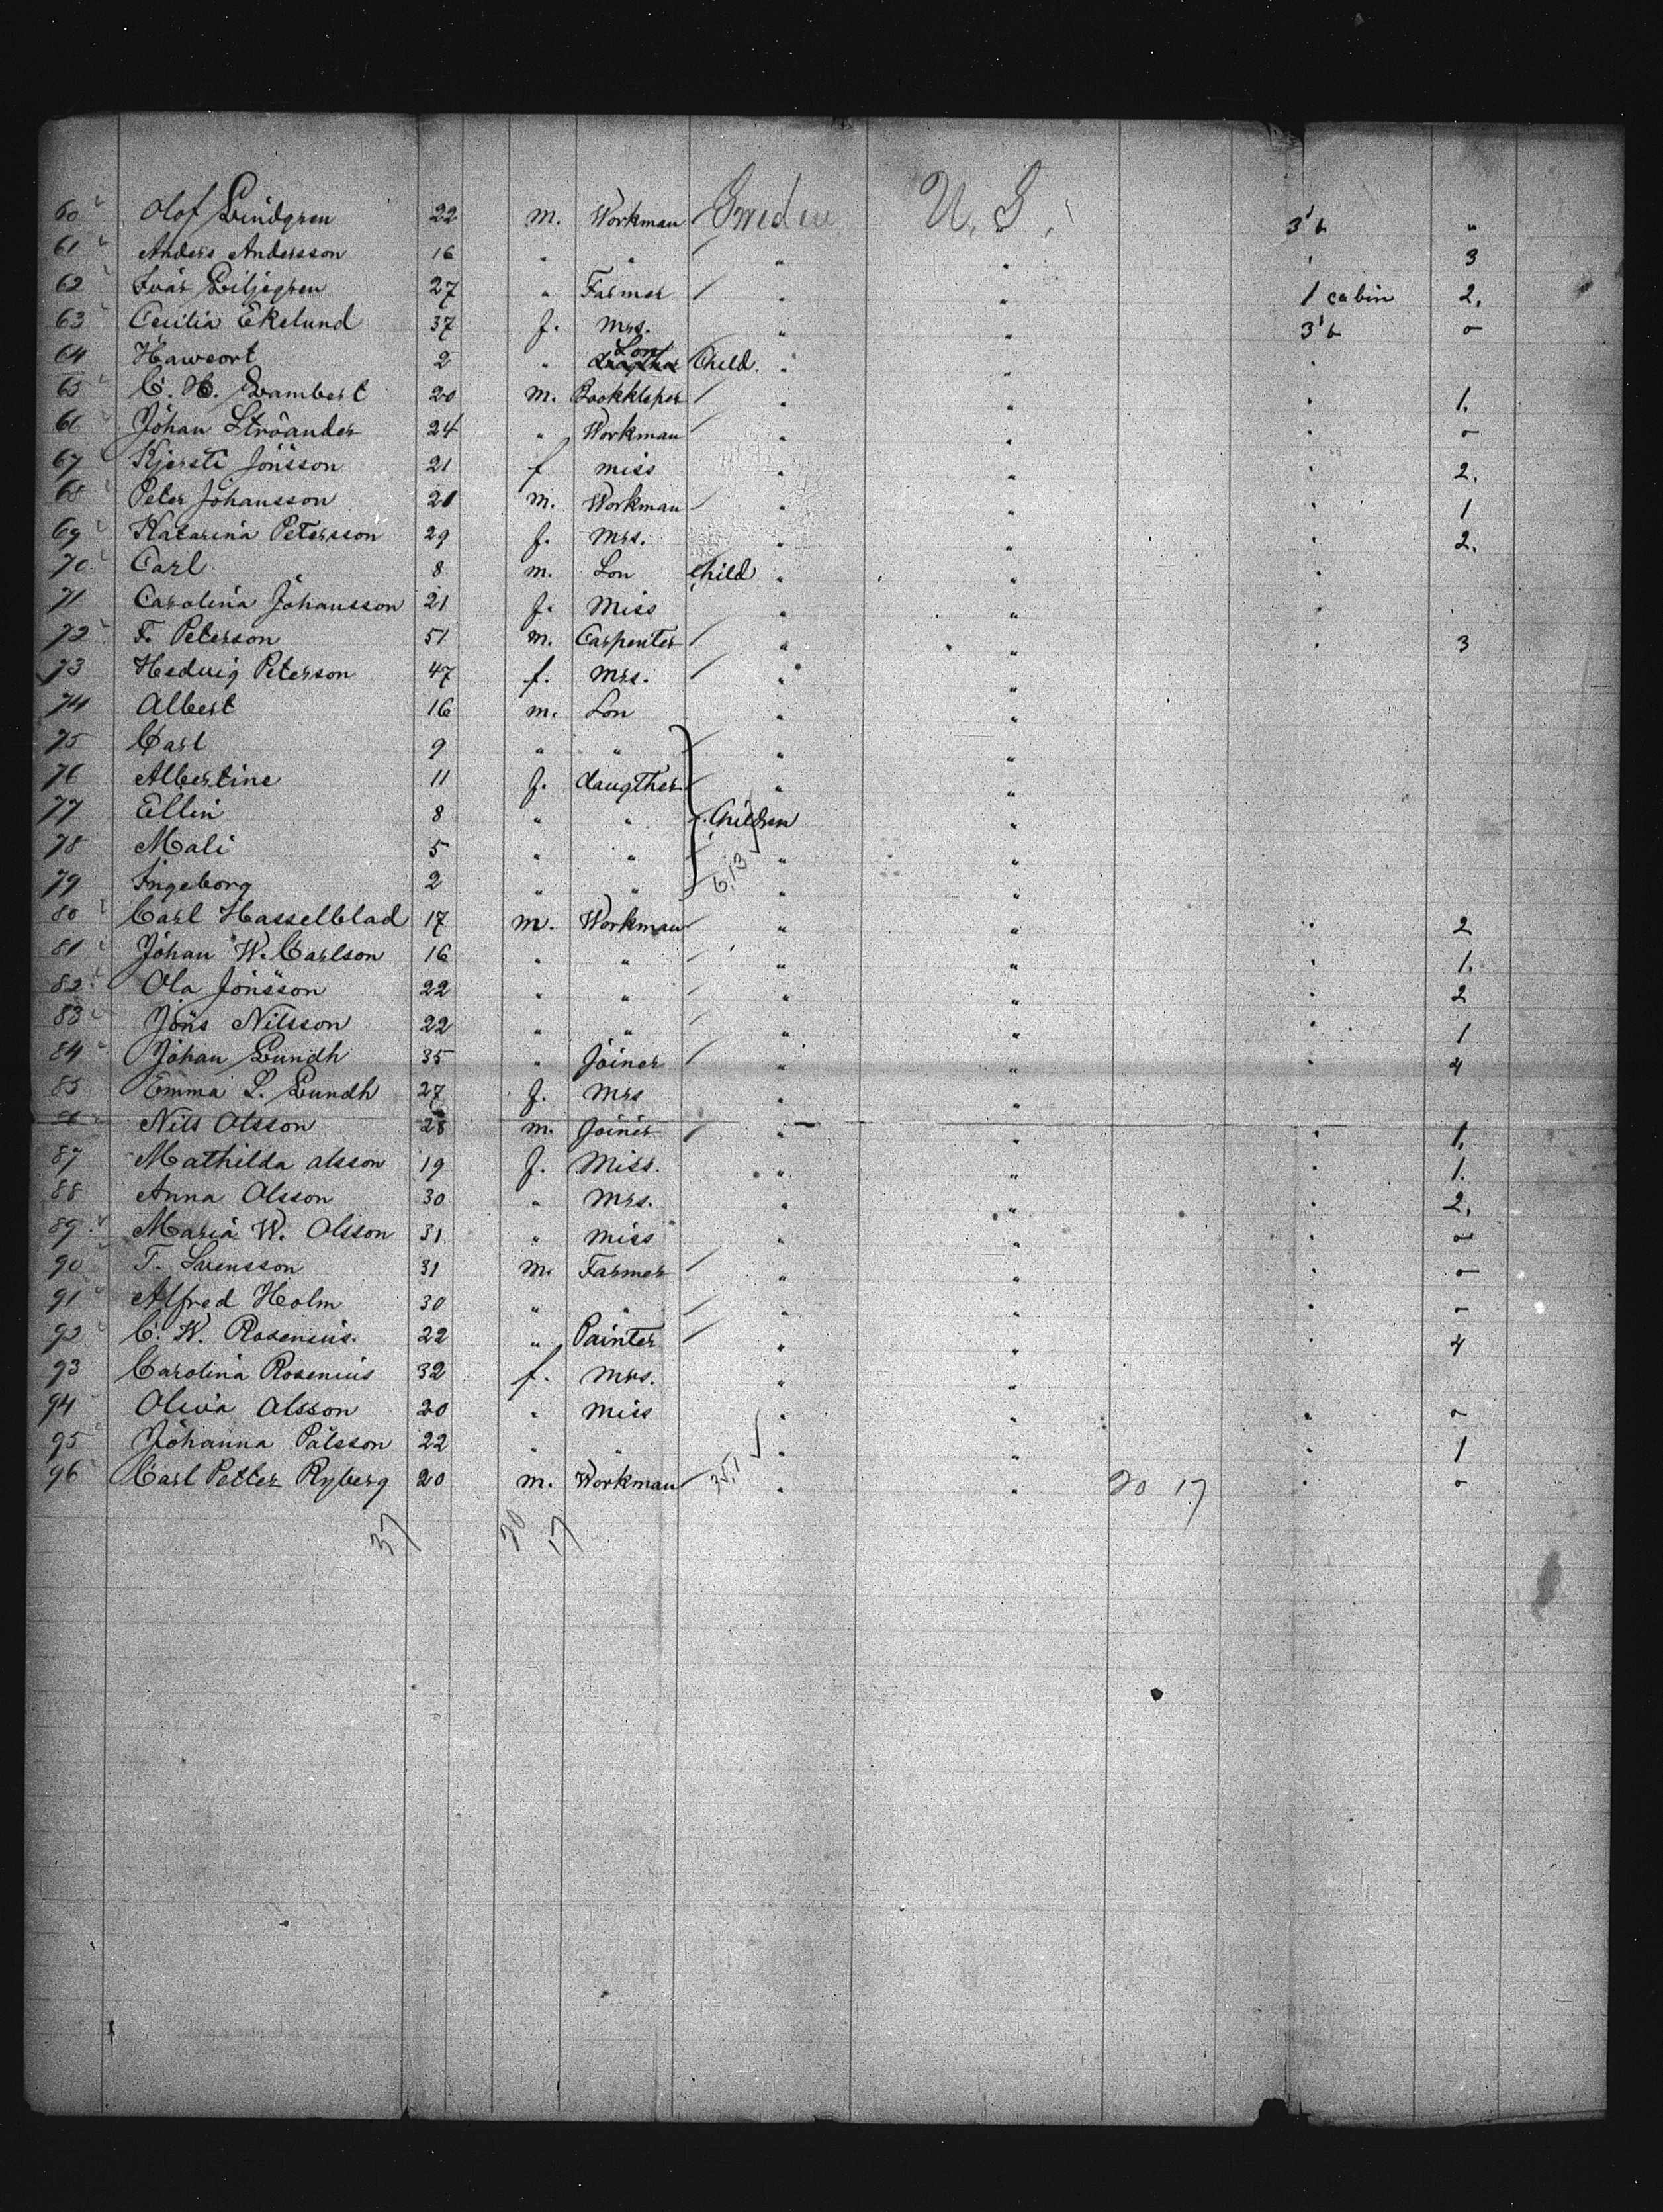 60 Olof Lindgren 22 m. Workman Sweden U. S. 3' "
61 Anders Andersson 16 " " " " " 3
62 Ivar Liljegren 27 " Farmer " " 1 cabin 2.
63 Cecilia Ekelund 37 f. Mrs. " " 3' o
64 2 " Son Child. " " "
65 C. H. Lambert 20 m. Bookkleper " " " 1.
66 Johan Ströander 24 " Workman " " " o
67 Kjersti Jönsson 21 f miss " " " 2.
68 Peter Johansson 21 m. Workman " " " 1
69 Katarina Petersson 29 f. Mrs. " " " 2.
70 Carl 8 m. Son Child " " "
71 Carolina Johansson 21 f. Miss " " "
72 F. Peterson 51 m. Carpenter " " " 3
73 Hedvig Peterson 47 f. Mrs. " "
74 Albert 16 m. Son " "
75 Carl 9 " " " "
76 Albertine 11 f. daugther " "
77 Ellin 8 " " Children "
78 Mali 5 " " " "
79 Ingeborg 2 " " 6,13 " "
80 Carl Hasselblad 17 m. Workman " " " 2
81 Johan W. Carlson 16 " " " " " 1.
82 Ola Jönsson 22 " " " " " 2
83 Jöns Nilsson 22 " " " " " 1
84 Johan Lundh 35 " Joiner " " " 4
85 Emma L. Lundh 27 f. Mrs " "
Nils Olsson 28 m. Joiner " " " 1.
87 Mathilda Olsson 19 f. Miss. " " " 1.
88 Anna Olsson 30 " Mrs. " " " 2.
89 Maria W. Olsson 31 " miss " " " o
90 T. Svensson 31 m. Farmer " " " o
91 Alfred Holm 30 " " " " " o
92 C. W. Rosenius. 22 " Painter " " " 4
93 Carolina Rosenius 32 f. Mrs. " "
94 Olivia Olsson 20 " Miss " " " o
95 Johanna Pålsson 22 " " " " " 1
96 Carl Petter Ryberg 20 m. Workman " " 20 17 " o
37 20 17